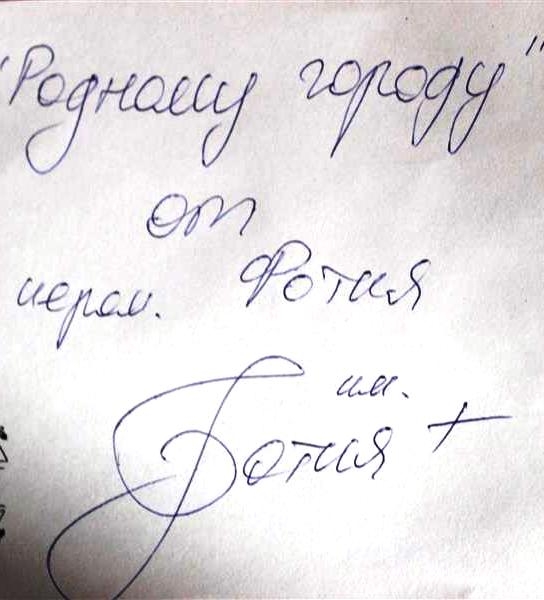 "Родному городу"
от
иером. Фотия
им.
Фотия +